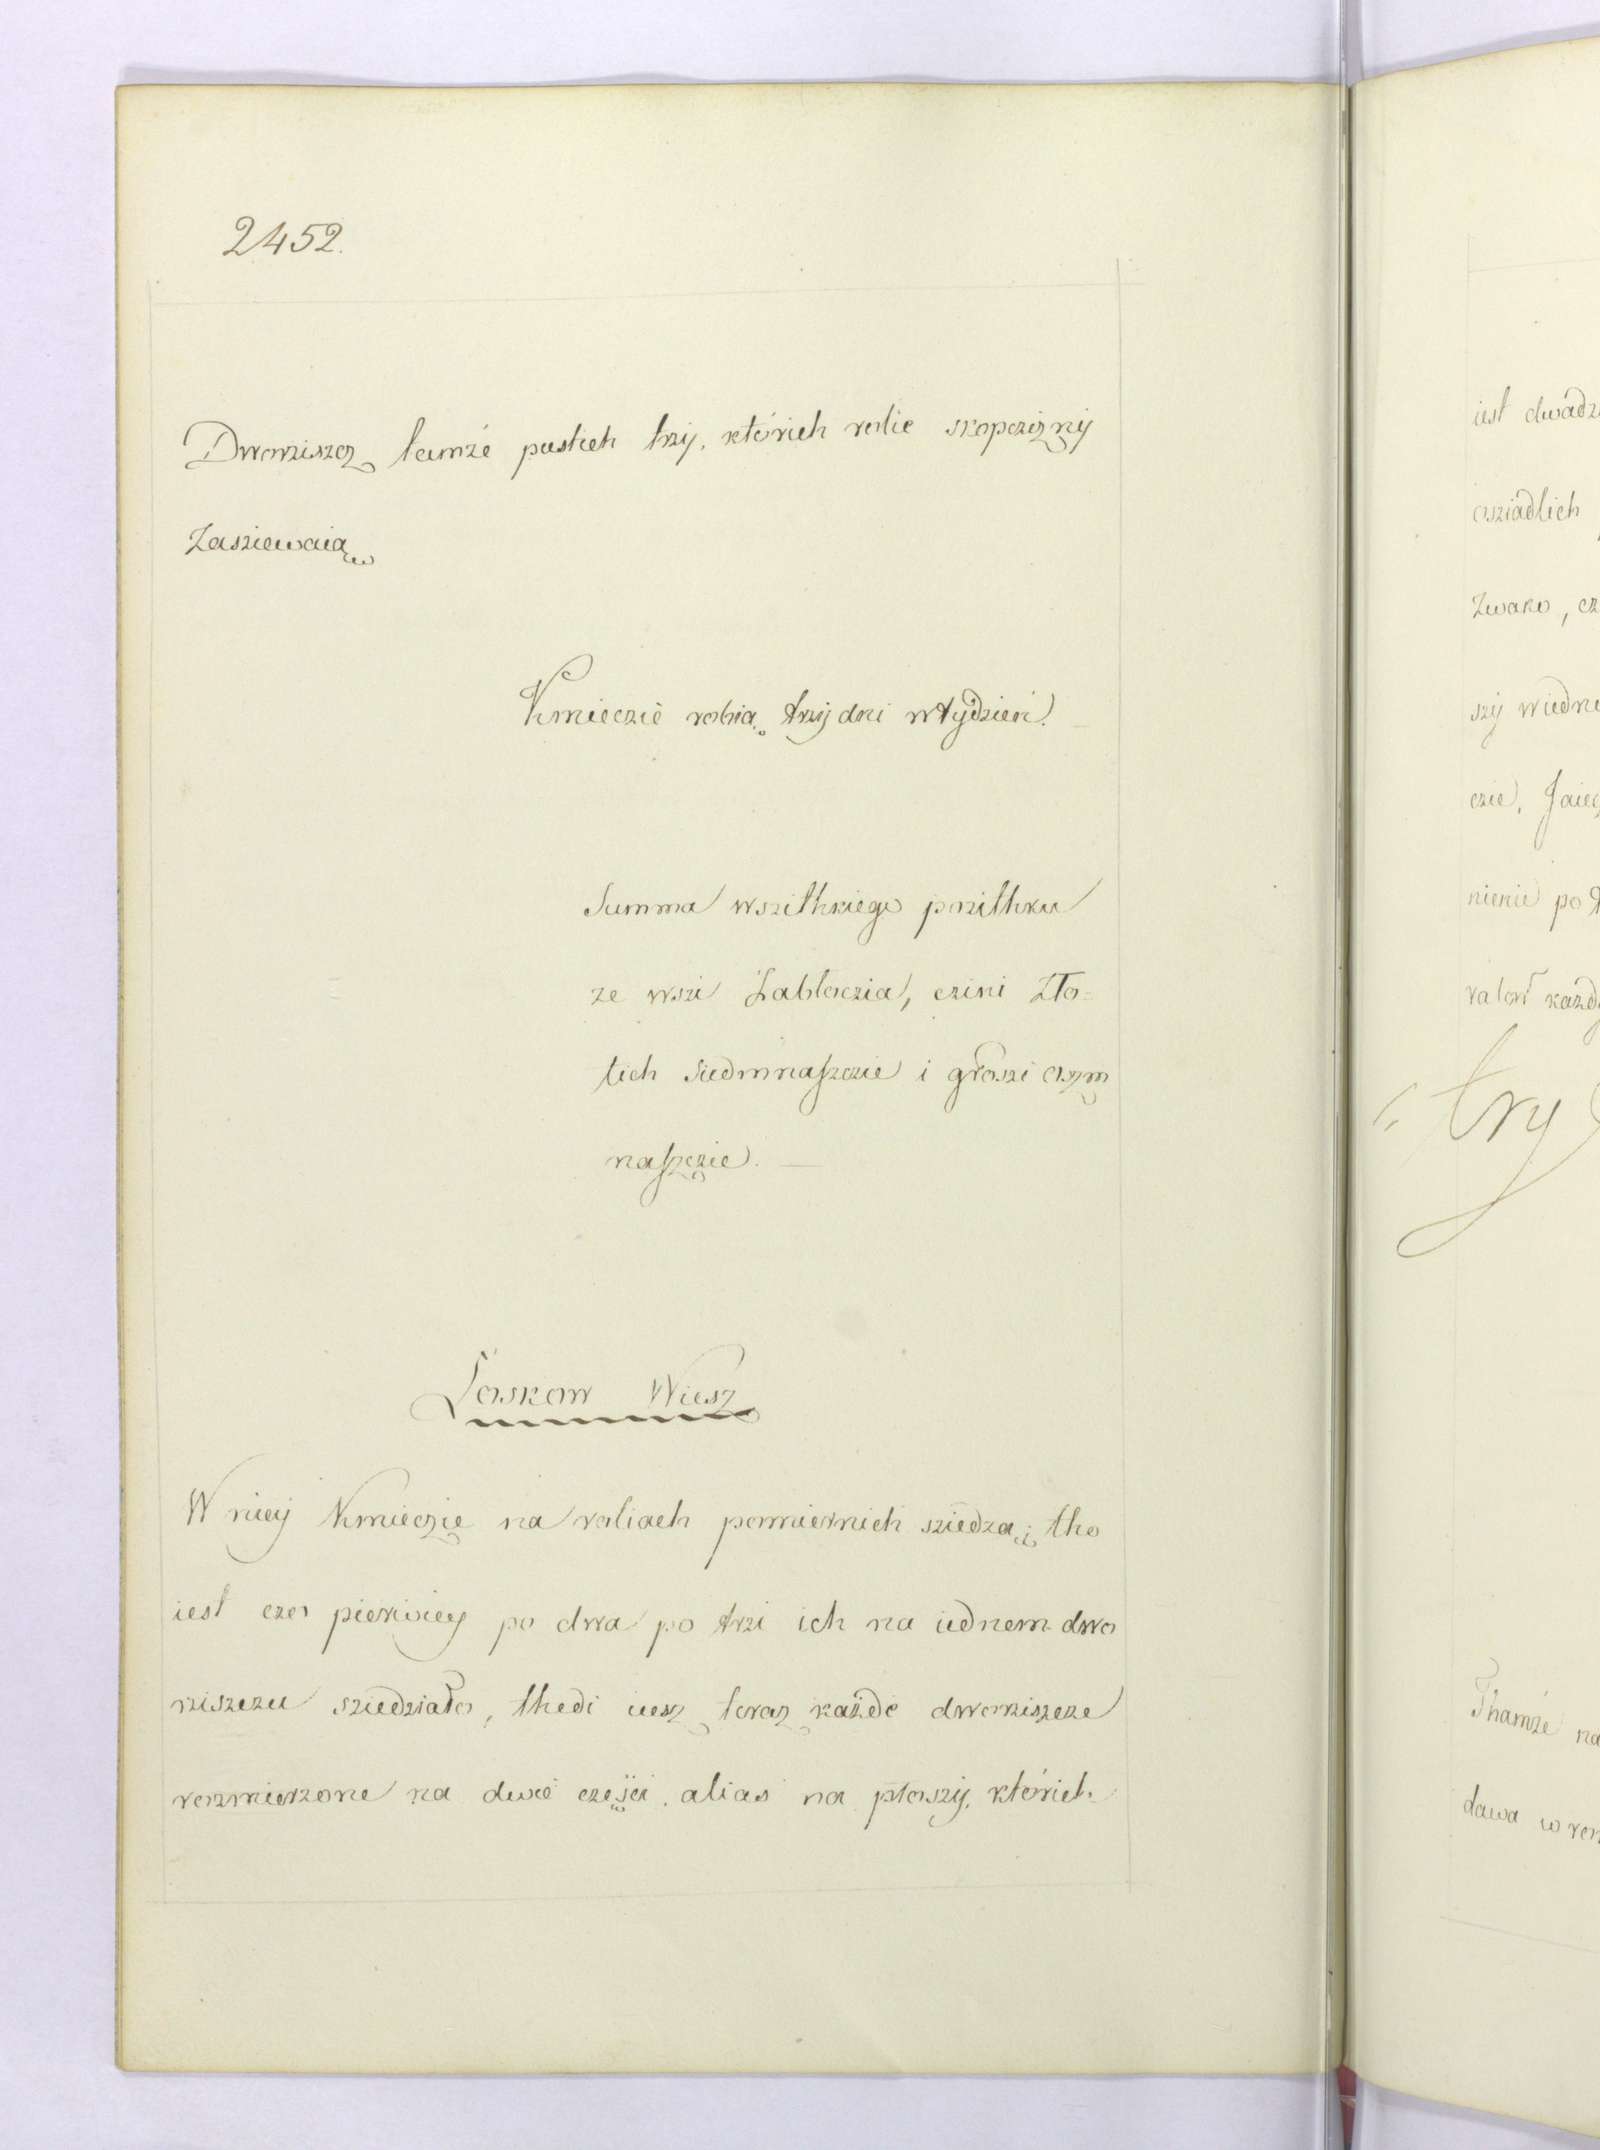 2452.
Dworziszcz tamże pustich trzy, którich rolie skopczizny
Zasziewaią
Kmieczie robią trzy dni w tydzień.
Summa wszitkiego pozithku
ze wszi Zabłoczia, czini Zło=
tich siedmnaszczie i groszi oszm
naszczie. —
Łoskow Wiesz
W niey Kmieczie na roliach pomiernich sziedzą; tho
iest czo pierwiey po dwa po trzi ich na iednem dwo
rziszczu sziedziało, thedi iesz teraz każde dworziszcze
rozmierzone na dwie części alias na płoszy, którich
iest
osziadlich
Zwano, cz
szy wiedne
czie,
nienie po
try
Thamże na
dawa w